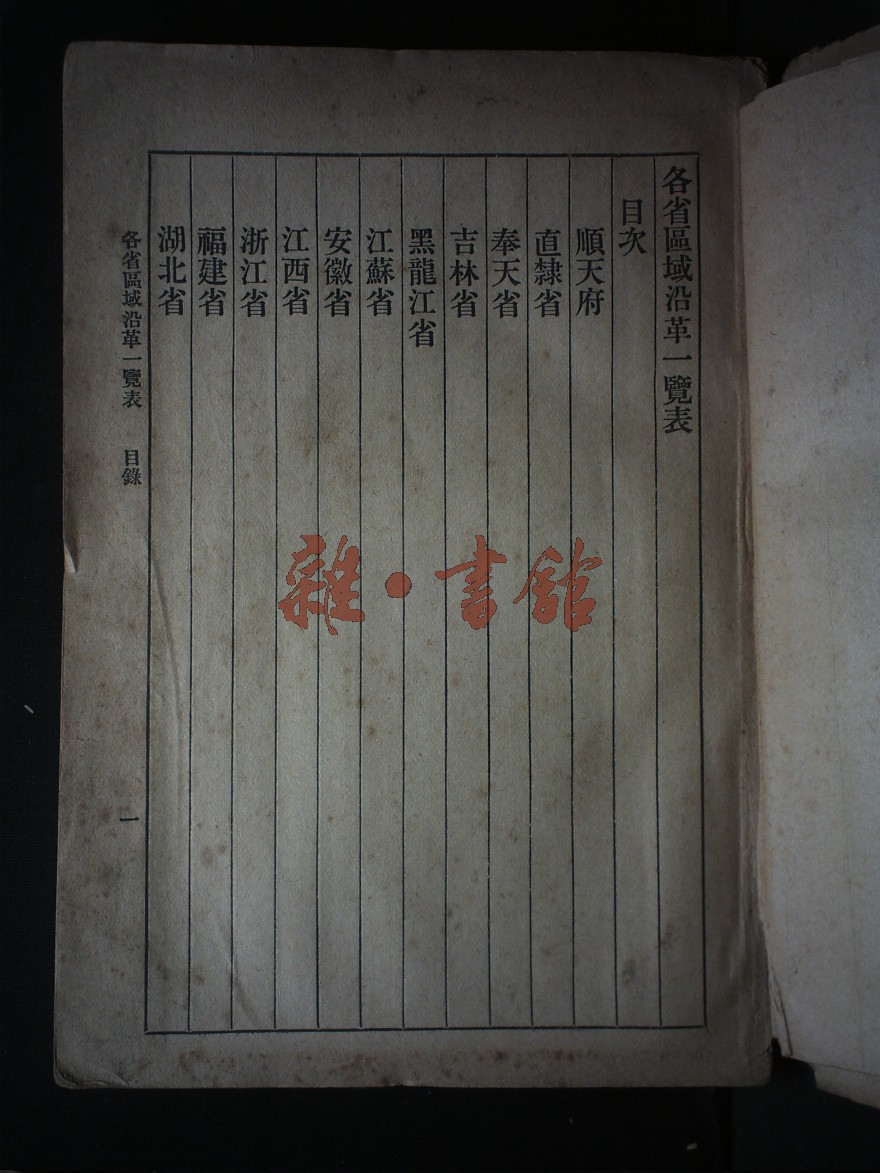 各省區域沿革一覽表
目次
順天府
直隸省
奉天省
吉林省
黑龍江省
江蘇省
安徽省
江西省
浙江省
福建省
湖北省
各省區域沿革一覽表 目錄 一
雜·書館